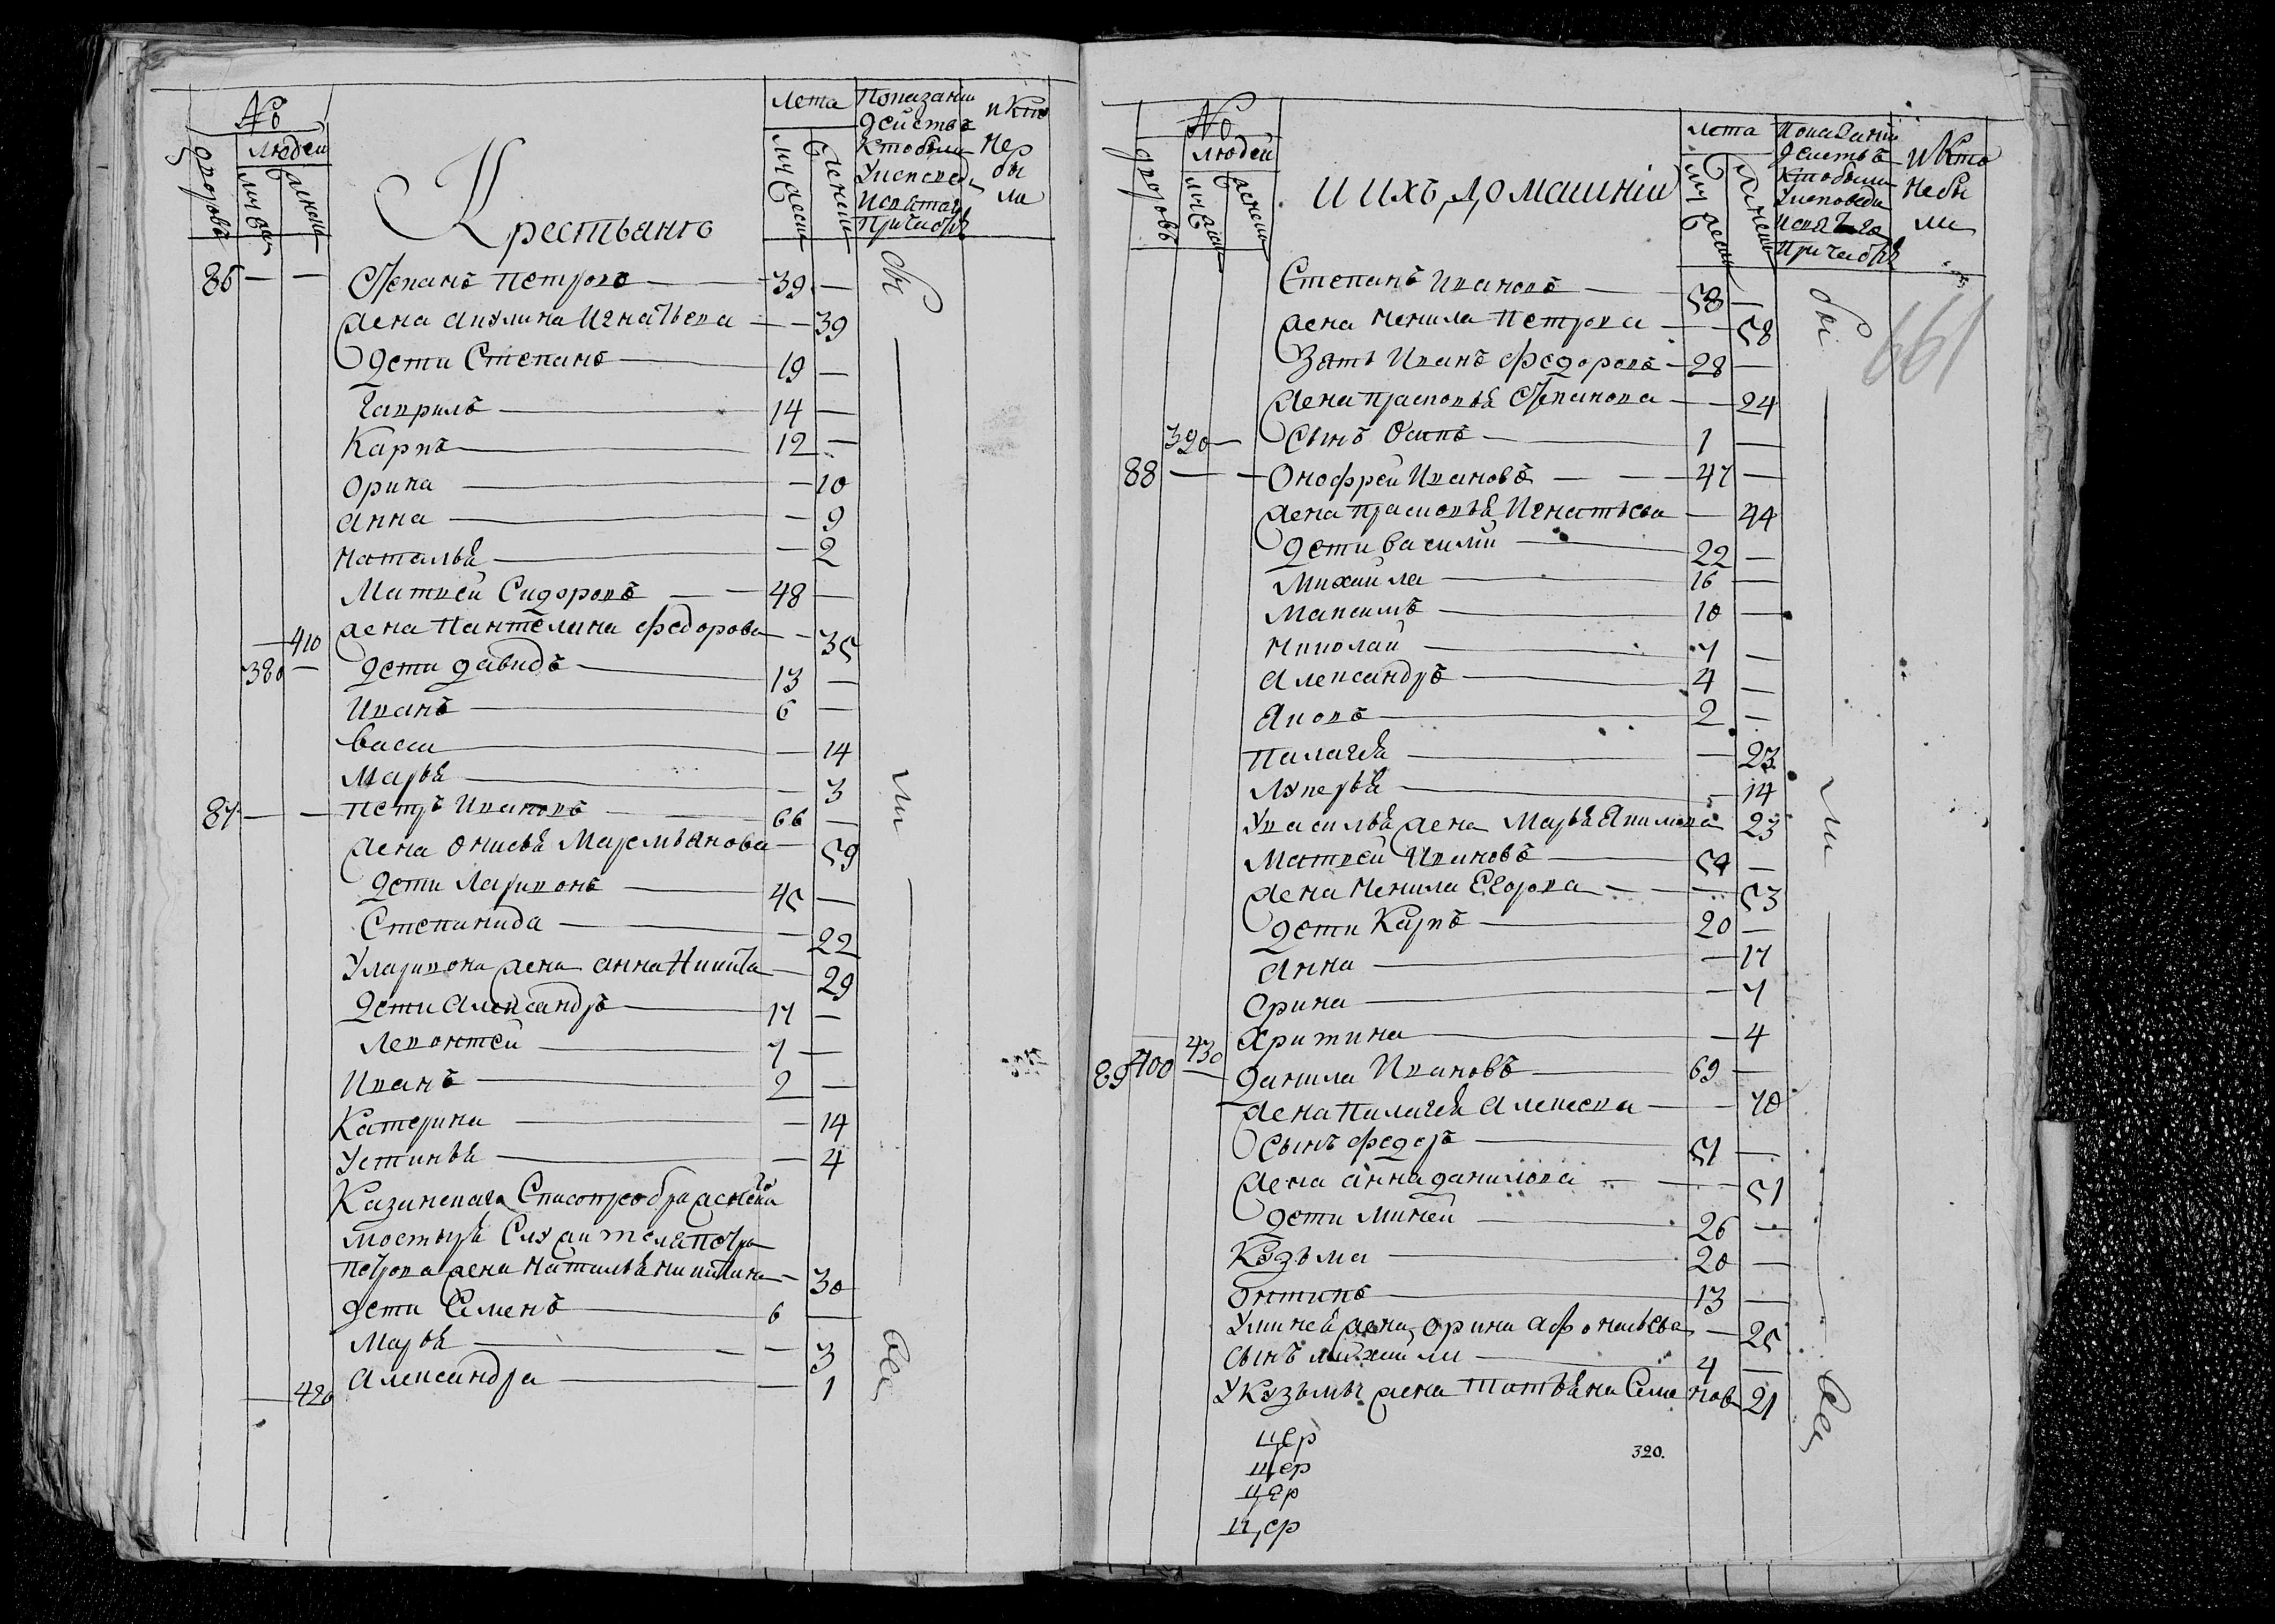 №
людей
дворовъ
муж
женс
Крестьянѣ
лета
мужеска
женска
Показаніи
действ
Кто были
У исповед
и св таи
Причастія
и Кто
не
бы
ли
86 — — Степанъ Петровъ — 39 —
жена Акулина Игнатьева — 39
дети Степанъ — 19 —
Гаврилъ — 14 —
Карпъ — 12 —
Орина — 10
Анна — 9
Наталья — 2
Матвей Сидоровъ — 48 —
— 410 жена Пантелина Федорова — 35
380 — дети Давидъ — 13 —
Иванъ — 6 —
Васса — 14
Марья — 3
87 — — Петръ Ивановъ — 66 —
жена Онисья Маремьянова — 59
дети Ларивонъ — 45 —
Степанида — 22
У Ларивона жена Анна Никита — 29
дети Александръ — 17 —
Левонтей — 7 —
Иванъ — 2 —
Катерина — 14
Устинья — 4
Казинскага Спасопреображенска го
Петрова жена Наталья Никитина — 30
дети Семенъ — 6 —
Марья — 3
— 420 Александра — 1
бы
ли
все
№
людей
дворовъ
муж
женски
и ихъ домашніи
лета
мужески
женски
Показаніи
действъ
Кто были
У исповеди
и святаго
Причастія
и Кто
не бы
ли
661
Степанъ Ивановъ — 58 —
жена Ненила Петрова — 58
Зять Иванъ Федоровъ — 28 —
жена Прасковья Степанова — 24
390 — Сынъ Осипъ — 1 —
88 — — Онофрей Ивановъ — 47 —
жена Прасковья Игнатьева — 44
дети Василий — 22 —
Михайла — 16 —
Максимъ — 10 —
Николай — 7 —
Александръ — 4 —
Яковъ — 2 —
Палагея — 23
Лукерья — 14
У Василья жена Марья Якимова 23
Матвей Ивановъ — 54 —
жена Ненила Егорова — 53
дети Карпъ — 20 —
Анна — 17
Орина — 7
— 430 Хритина — 4
89 400 — Данила Ивановъ — 69 —
жена Палагея Алексева — 70
Сынъ Федоръ — 51 —
жена Анна Данилова — 51
дети Миней — 26 —
Кузьма — 20 —
Антипъ — 13 —
У Минея жена Орина Афонасьева — 25
сынъ Михаила — 4 —
У Кузьмы жена Татьяна Семенов 21
бы
ли
все
цер
цер
цер
цер
320.